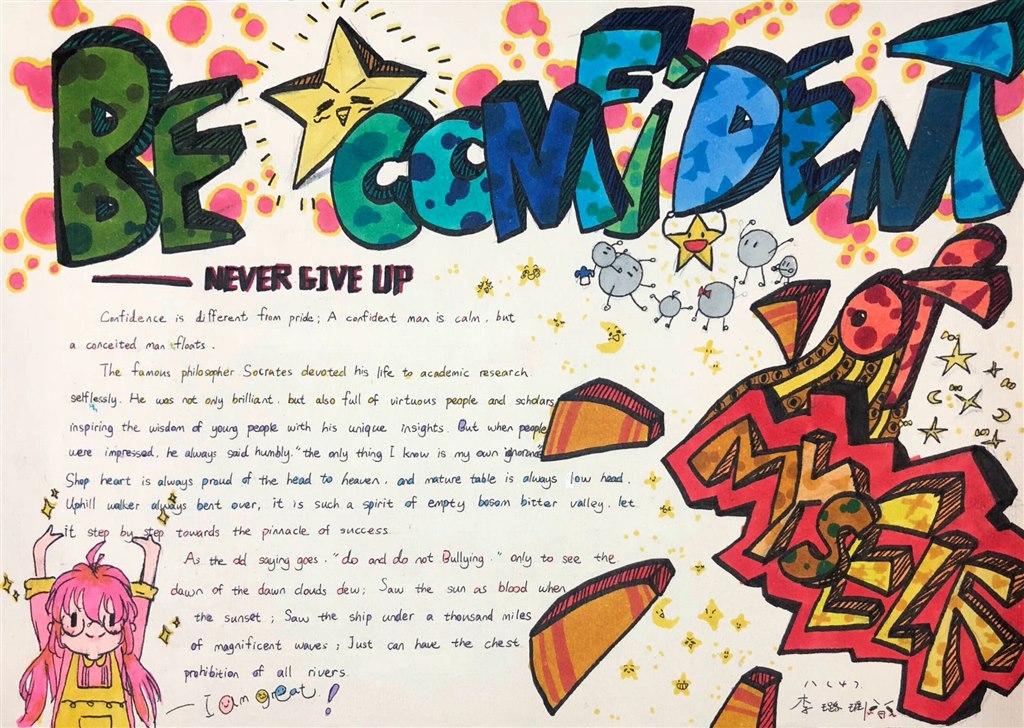 BE CONFIDENT
NEVER GIVE UP
Confidence is different from pride; A confident man is calm, but
a conceited man floats.
The famous philosopher Socrates devoted his life to academic research
selflessly. He was not only brilliant, but also full of virtuous people and scholars,
inspiring the wisdom of young people with his unique insights. But when people
were impressed, he always said humbly, "the only thing I know is my own ignorance"
Shop heart is always proud of the head to heaven, and mature table is always low head.
Uphill walker always bent over, it is such a spirit of empty bosom bitter valley, let
it step by step towards the pinnacle of success.
As the old saying goes, "do and do not Bullying." only to see the
dawn of the dawn clouds dew; Saw the sun as blood when
the sunset; Saw the ship under a thousand miles
of magnificent waves; Just can have the chest
prohibition of all rivers.
— I am great!
MYSELF
李